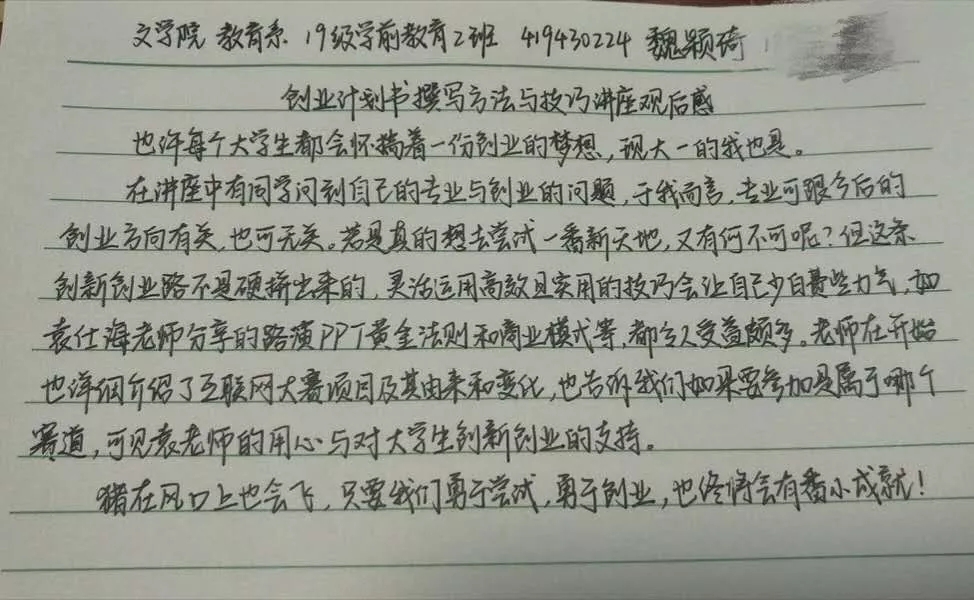 文学院 教育系 19级学前教育2班 419430224 魏颖琦
创业计划书撰写方法与技巧讲座观后感
也许每个大学生都会怀揣着一份创业的梦想，现大一的我也是。
在讲座中有同学问到自己的专业与创业的问题，于我而言，专业可跟今后的
创业方向有关，也可无关。若是真的想去尝试一番新天地，又有何不可呢？但这条
创新创业路不是硬挤出来的，灵活运用高效且实用的技巧会让自己少白费些力气，如
袁仕海老师分享的路演PPT黄金法则和商业模式等，都令人受益颇多。老师在开始
也详细介绍了互联网大赛项目及其由来和变化，也告诉我们如果要参加是属于哪个
赛道，可见袁老师的用心与对大学生创新创业的支持。
猪在风口上也会飞，只要我们勇于尝试，勇于创业，也终将会有番小成就！